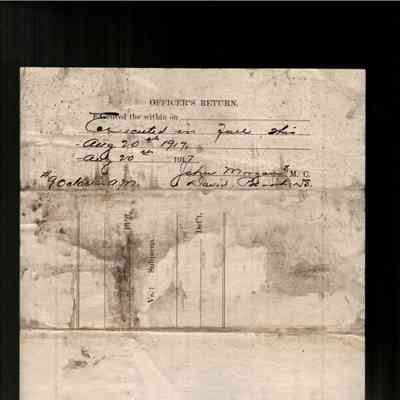 OFFICER'S RETURN.
Executed the within on
Executed in full this
Aug 20th 1917,
Aug 20th 1917
John Morgan S M. C.
9 Oclock A.M. David
Pl'ff.
Vs. } Subpœna.
Def't.